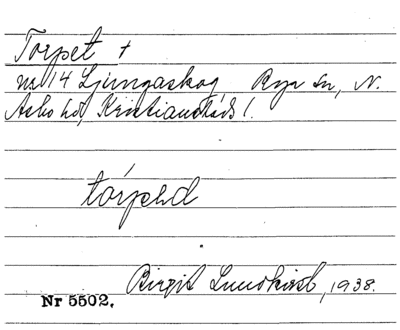 Torpet +
nr 14 Ljungaskog Rya sn, N.
Åsbo hd, Kristianstads l.
tórpəd
Birgit Lundkvist, 1938.
Nr 5502.